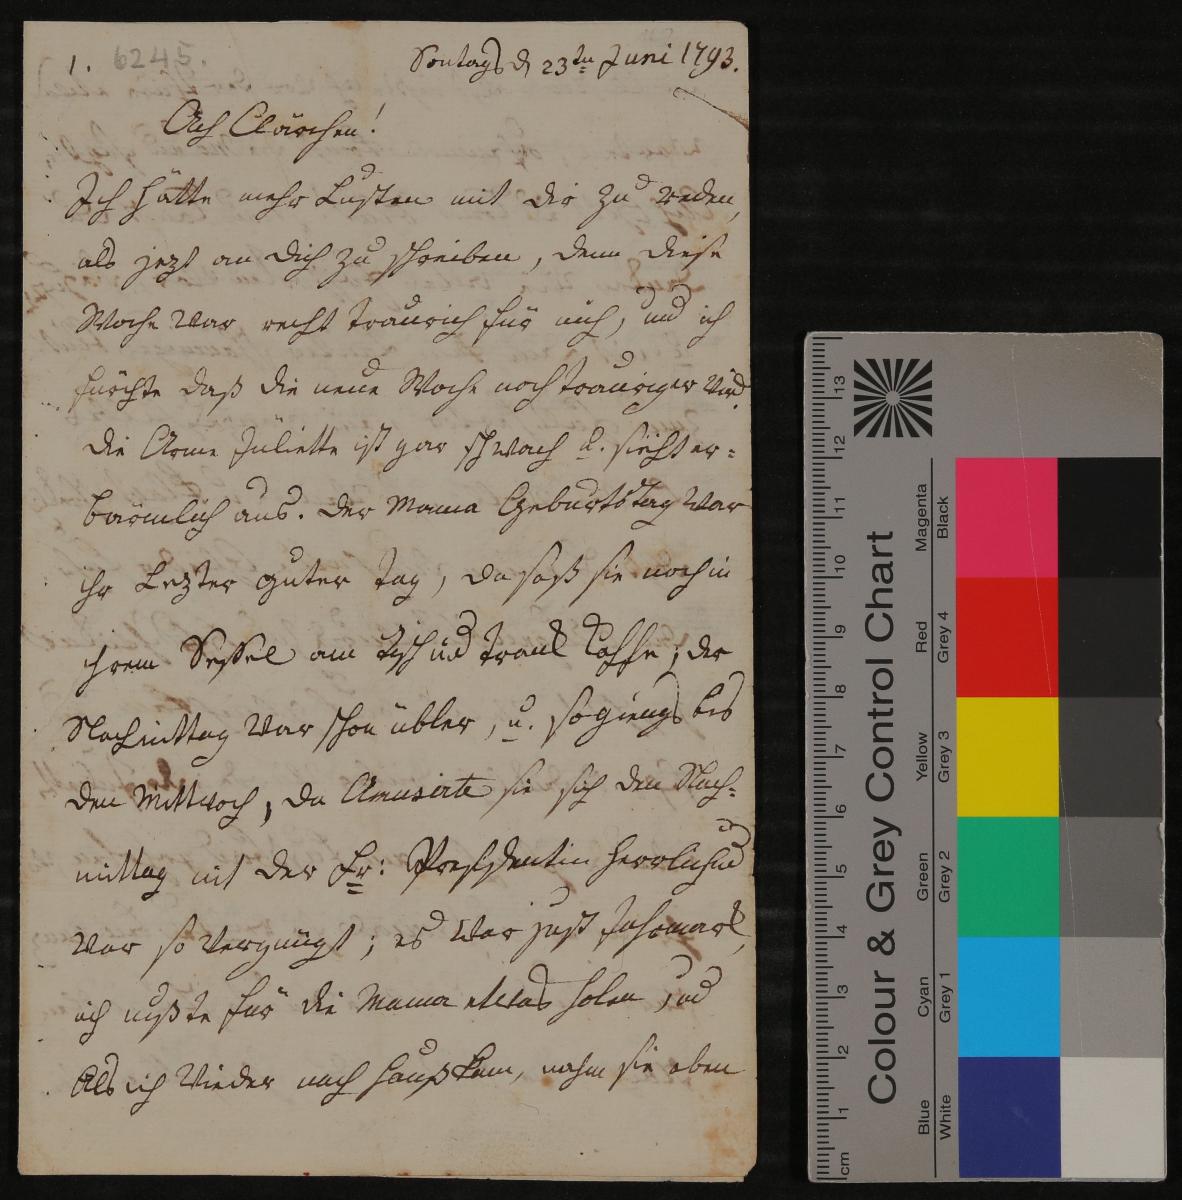 1. 6245.
Sontags d 23ten Juni 1793.
Ach Clärchen!
Ich hätte mehr Lusten mit dir zu reden,
als jezt an dich zu schreiben, denn diese
Woche war recht traurich für mich, und ich
fürchte daß die neue Woche noch trauriger wird.
die Arme Juliette ist gar schwach u. sieht er=
bärmlich aus. der Mama Geburtstag war
ihr Lezter guter tag, da saß sie noch in
ihrem Seßel am Tisch und trank Caffe, der
Nachmittag war schon übler, u. so giengs bis
den Mittwoch, da Amusirte sie sich den Nach=
mittag mit der Fr: Presidentin herrlich und
war so vergnügt; es war just Jahrmark,
ich mußte für die Mama etwas holen, und
Als ich wieder nach Hauß kam, nahm sie eben
cm 1 2 3 4 5 6 7 8 9 10 11 12 13
Colour & Grey Control Chart
Blue Cyan Green Yellow Red Magenta
White Grey 1 Grey 2 Grey 3 Grey 4 Black